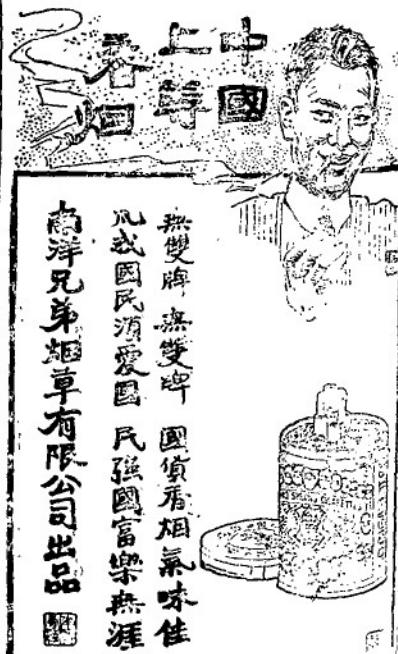 中國
上等
香烟
無雙牌 無雙牌 國貨香烟氣味佳
凡我國民須愛國 民强國富樂無涯
南洋兄弟烟草有限公司出品